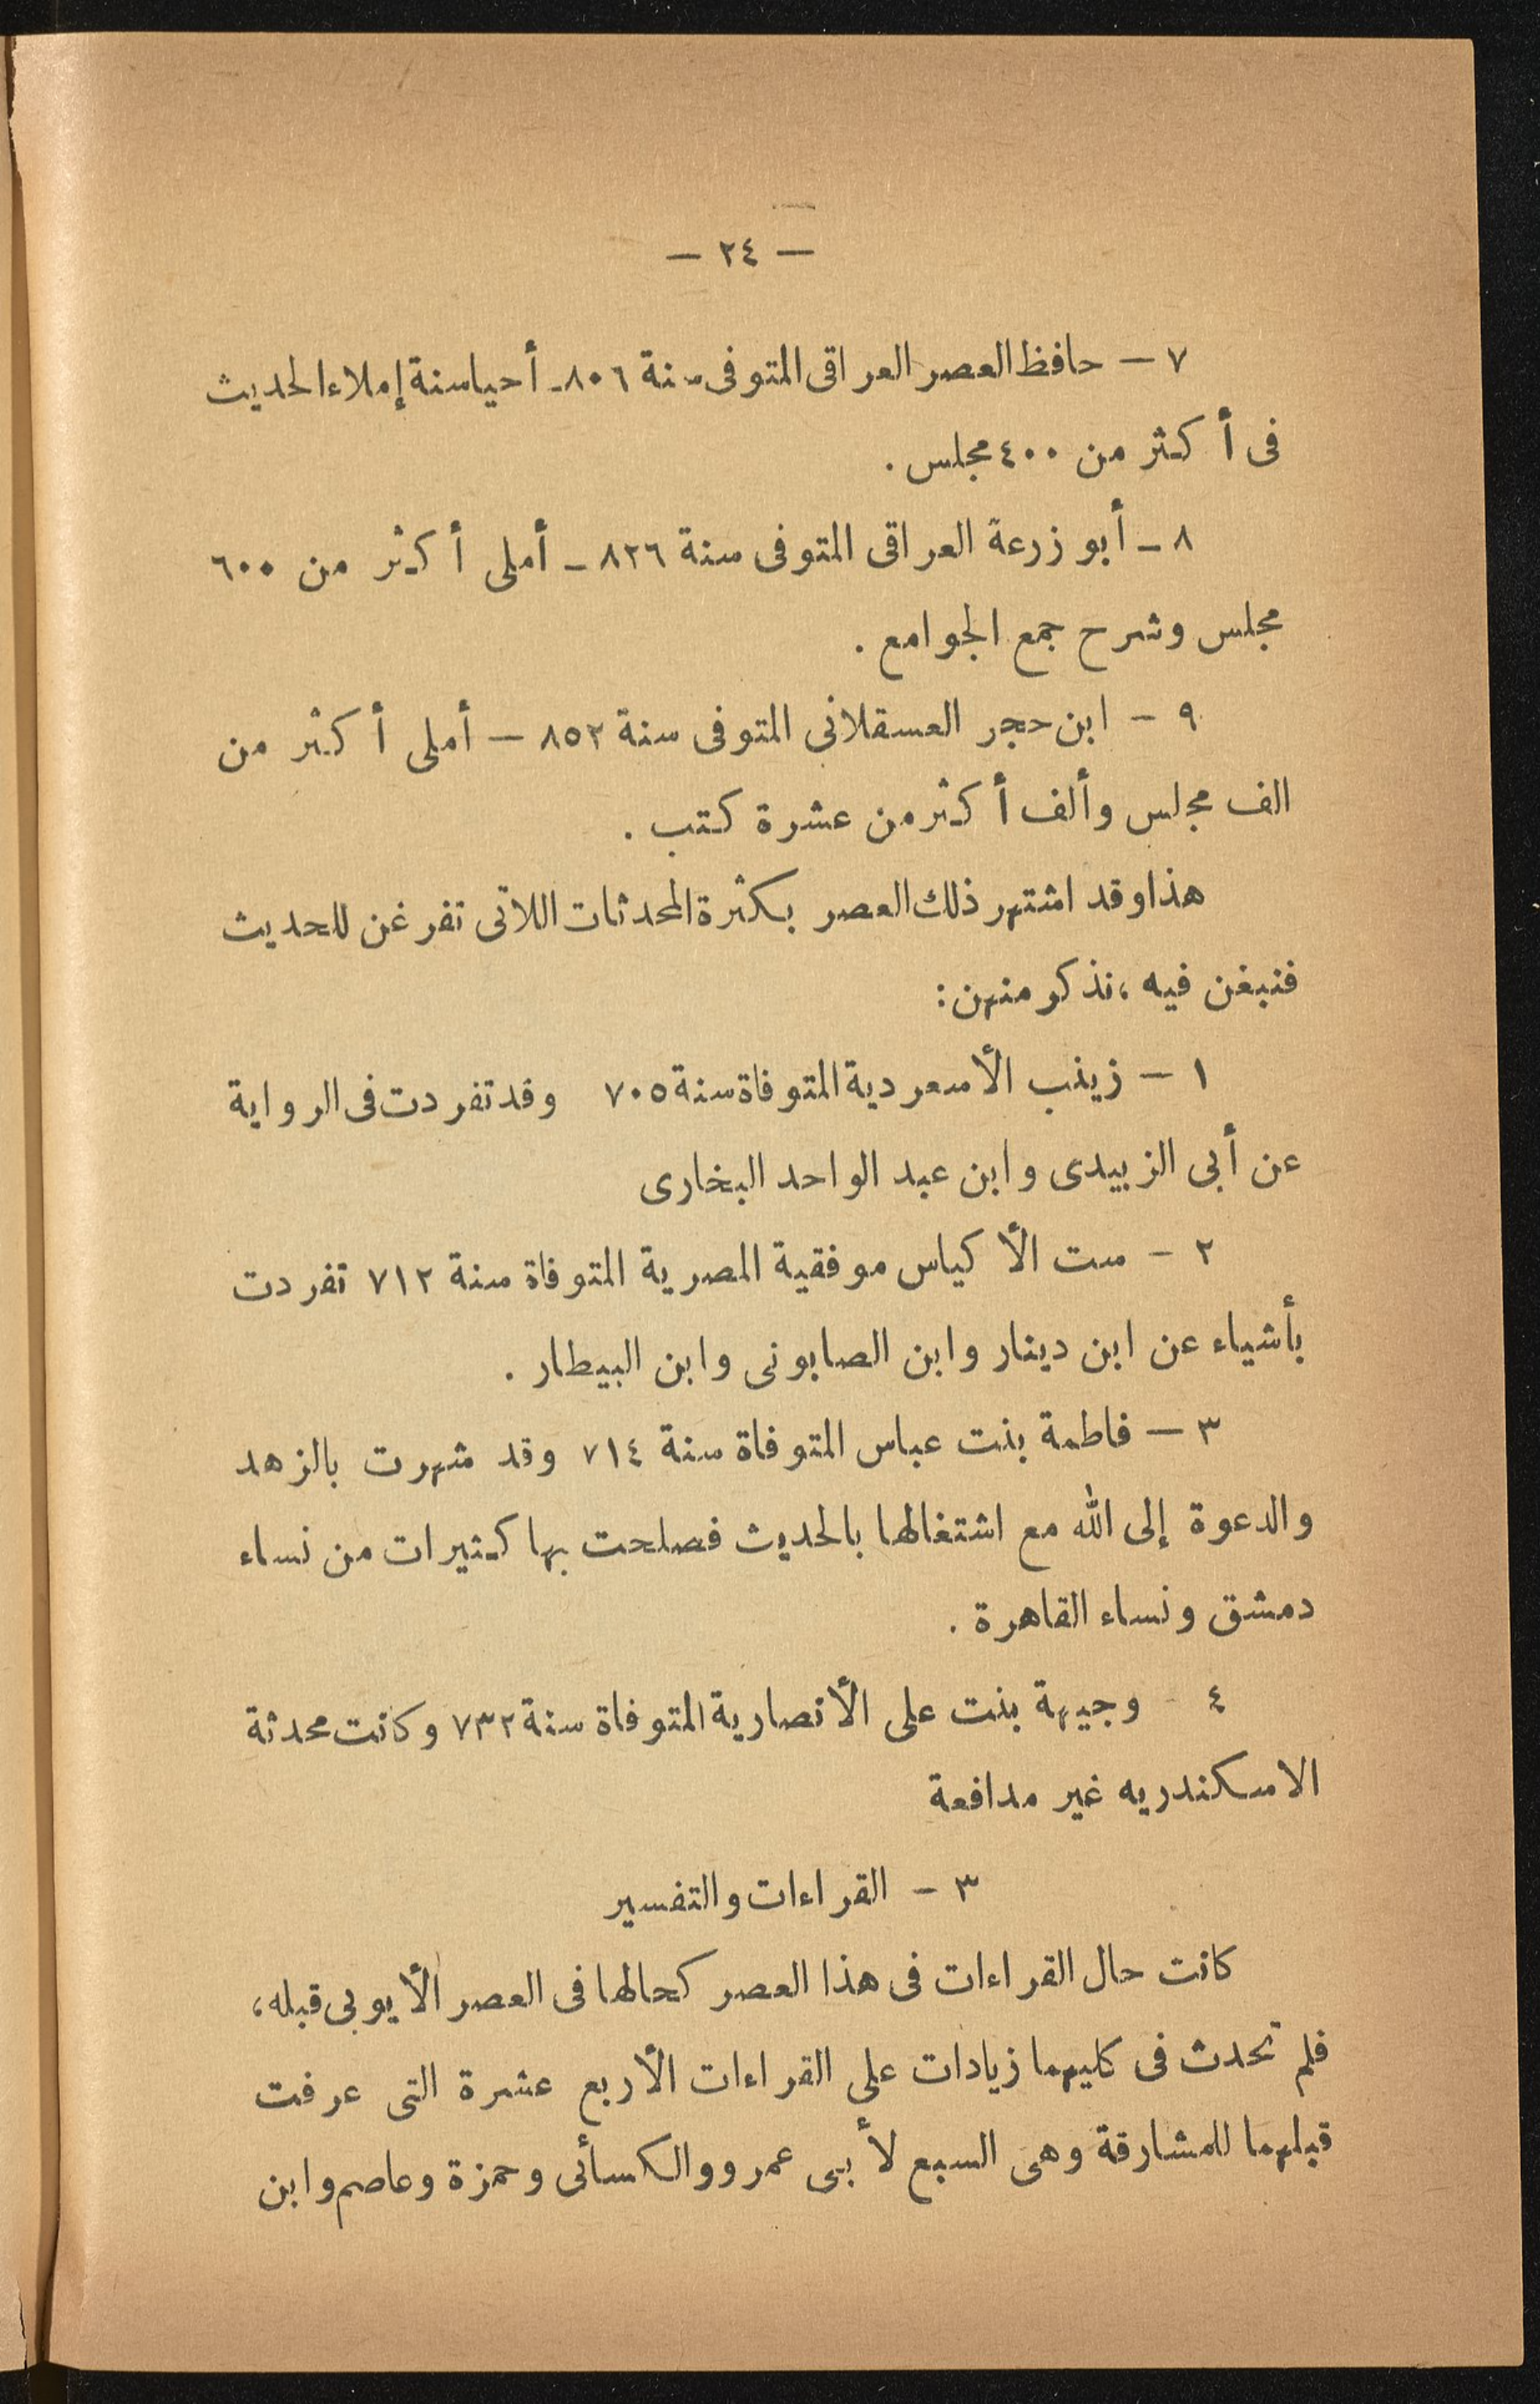 — ٢٤ —
٧ — حافظ العصر العراقى المتوفى سنة ٨٠٦ـ أحيا سنة إملاء الحديث
فى أكثر من ٤٠٠ مجلس .
٨ ـ أبو زرعة العراقى المتوفى سنة ٨٢٦ ـ أملى أكثر من ٦٠٠
مجلس وشرح جمع الجوامع .
٩ — ابن حجر العسقلانى المتوفى سنة ٨٥٢ — أملى أكثر من
الف مجلس وألف أكثر من عشرة كتب .
هذا وقد اشتهر ذلك العصر بكثرة المحدثات اللاتى تفرغن للحديث
فنبغن فيه ، نذكر منهن :
١ — زينب الأسعردية المتوفاة سنة ٧٠٥ وقد تفردت فى الرواية
عن أبى الزبيدى وابن عبد الواحد البخارى
٢ — ست الأكياس موفقية المصرية المتوفاة سنة ٧١٢ تفردت
بأشياء عن ابن دينار وابن الصابونى وابن البيطار .
٣ — فاطمة بنت عباس المتوفاة سنة ٧١٤ وقد شهرت بالزهد
والدعوة إلى الله مع اشتغالها بالحديث فصلحت بها كثيرات من نساء
دمشق ونساء القاهرة .
٤ - وجيهة بنت على الأنصارية المتوفاة سنة ٧٣٢ وكانت محدثة
الاسكندريه غير مدافعة
٣ — القراءات والتفسير
كانت حال القراءات فى هذا العصر كحالها فى العصر الأيوبى قبله ،
فلم تحدث فى كليهما زيادات على القراءات الأربع عشرة التى عرفت
قبلهما للمشارقة وهى السبع لأبى عمرو والكسائى وحمزة وعاصم وابن